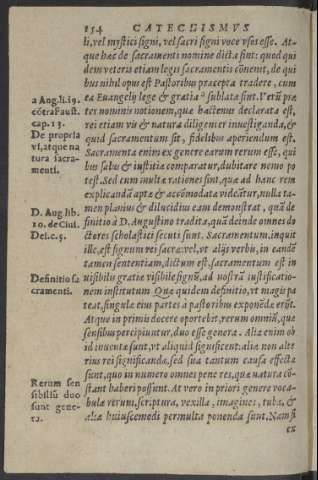 154 CATECHISMVS
li, vel mystici signi, vel sacri signi voce vsos esse. At-
que hæc de sacramenti nomine dicta sint: quod qui
dem veteris etiam legis sacramentis cõuenit, de qui
bus nihil opus est Pastoribus præcepta tradere, cum
ea Euangelij lege & gratia ᵃ sublata sint. Verũ præ
ter nominis notionem, quæ hactenus declarata est,
rei etiam vis & natura diligenter inuestiganda, &
quid sacramentum sit, fidelibus aperiendum est.
Sacramenta enim ex genere earum rerum esse, qui
bus salus & iustitia comparatur, dubitare nemo po
test. Sed cum multæ rationes sint, quæ ad hanc rem
explicandã aptæ & accõmodatæ videãtur, nulla ta-
men planius & dilucidius eam demonstrat, quã de
finitio à D. Augustino tradita, quã deinde omnes do
ctores scholastici secuti sunt. Sacramentum, inquit
ille, est signum rei sacræ: vel, vt alijs verbis, in eandẽ
tamen sententiam, dictum est. sacramentum est in
uisibilis gratiæ visibile signũ, ad nostrã iustificatio-
nem institutum. Quæ quidem definitio, vt magis pa
teat, singulæ eius partes à pastoribus exponẽdæ erũt.
Atque in primis docere oportebit, rerum omniũ, quæ
sensibus percipiuntur, duo esse genera. Aliæ enim ob
id inuentæ sunt, vt aliquid significent: aliæ non alte
rius rei significandæ, sed sua tantum causa effectæ
sunt, quo in numero omnes pene res, quæ natura cõ-
stant haberi possunt. At vero in priori genere voca-
bula rerum, scriptura, vexilla, imagines, tubæ, &
alia huiuscemodi permulta ponenda sunt. Nam si
ex
a Aug. li. 19.
cõtra Faust.
cap. 13.
De propria
vi, atque na
tura sacra-
menti.
D. Aug. lib.
10. de Ciui.
Dei. c. 5.
Definitio sa
cramenti.
Rerum sen
sibiliũ duo
sunt gene-
ra.